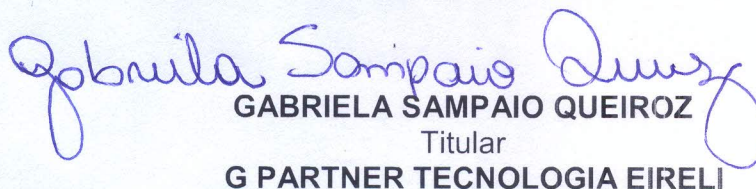 Gabriela Sampaio Queiroz
GABRIELA SAMPAIO QUEIROZ
Titular
G PARTNER TECNOLOGIA EIRELI